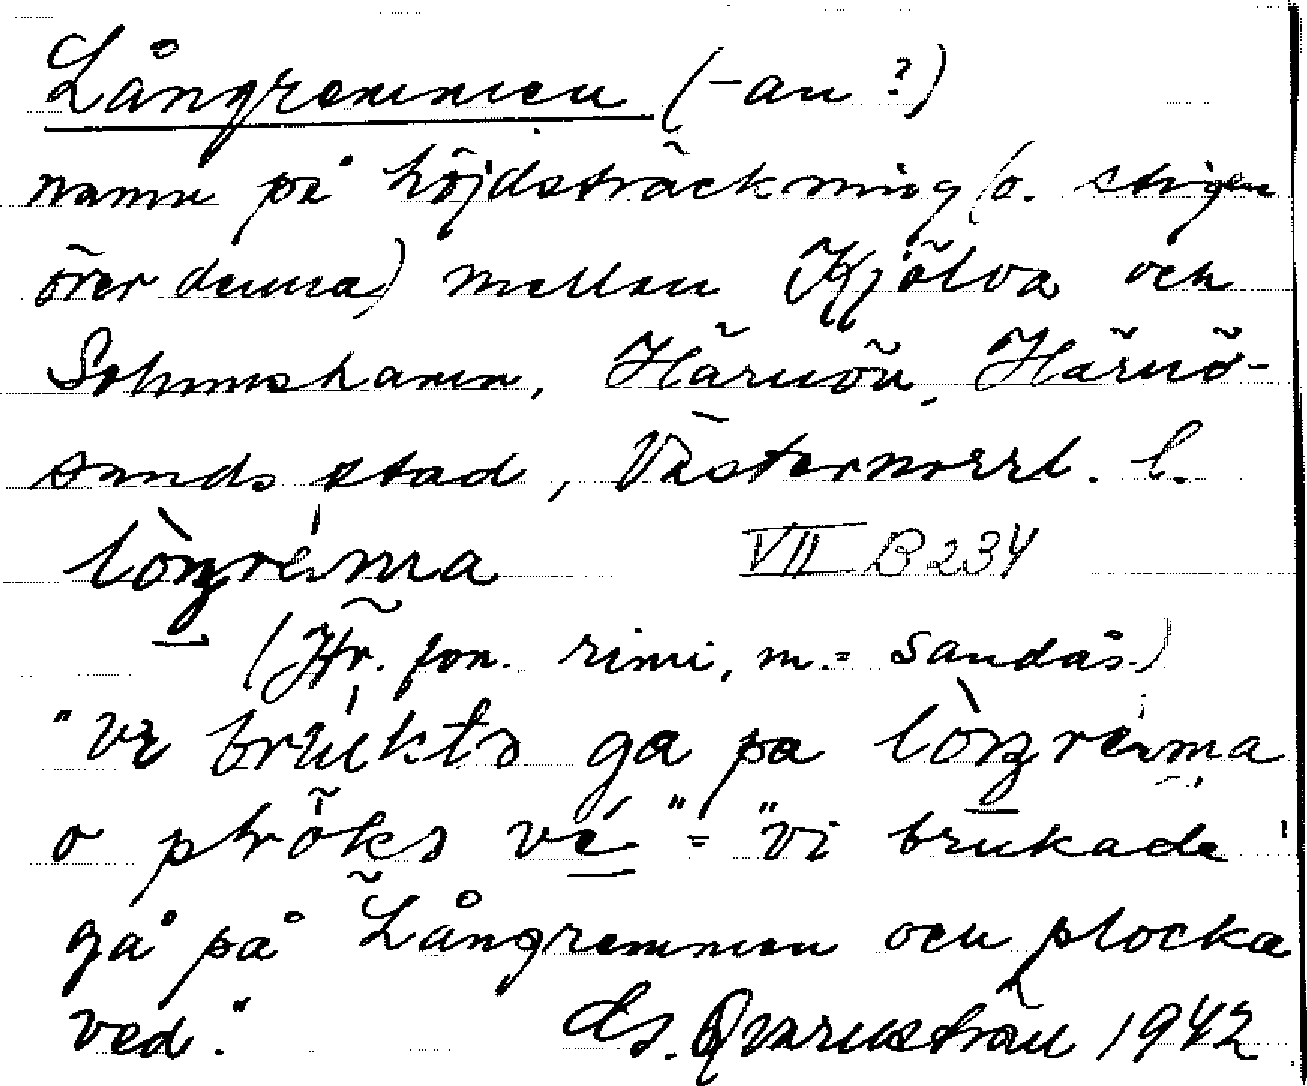 Långremmen (-an?)
namn på höjdsträckning (o. stigen
över denna) mellan Kjölva och
Solumshamn, Härnön, Härnö-
sands stad, Västernorrl. l.
lòŋrém̀a VII B 234
(Jfr. fvn. rimi, m. = sandås.)
"vɪ bruktə ga pa lòŋréma
o pɫɔkə ve" = "vi brukade
gå på Långremmen och plocka
ved." Es. Qvarnström 1942